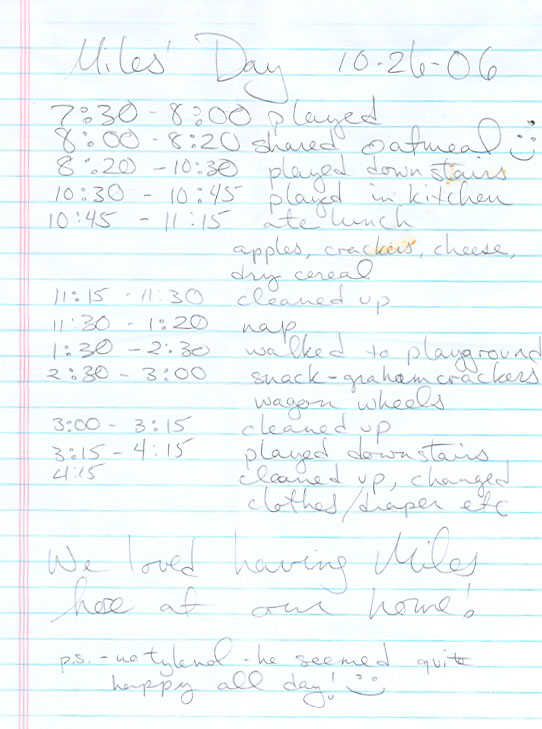 Miles' Day 10-26-06
7:30 - 8:00 played
8:00 - 8:20 shared oatmeal
8:20 - 10:30 played downstairs
10:30 - 10:45 played in kitchen
10:45 - 11:15 ate lunch
apples, crackers, cheese,
dry cereal
11:15 - 11:30 cleaned up
11:30 - 1:20 nap
1:30 - 2:30 walked to playground
2:30 - 3:00 snack - graham crackers
wagon wheels
3:00 - 3:15 cleaned up
3:15 - 4:15 played downstairs
4:15 cleaned up, changed
clothes/diaper etc
We loved having Miles
here at our home!
p.s. - no tylenol - he seemed quite
happy all day!